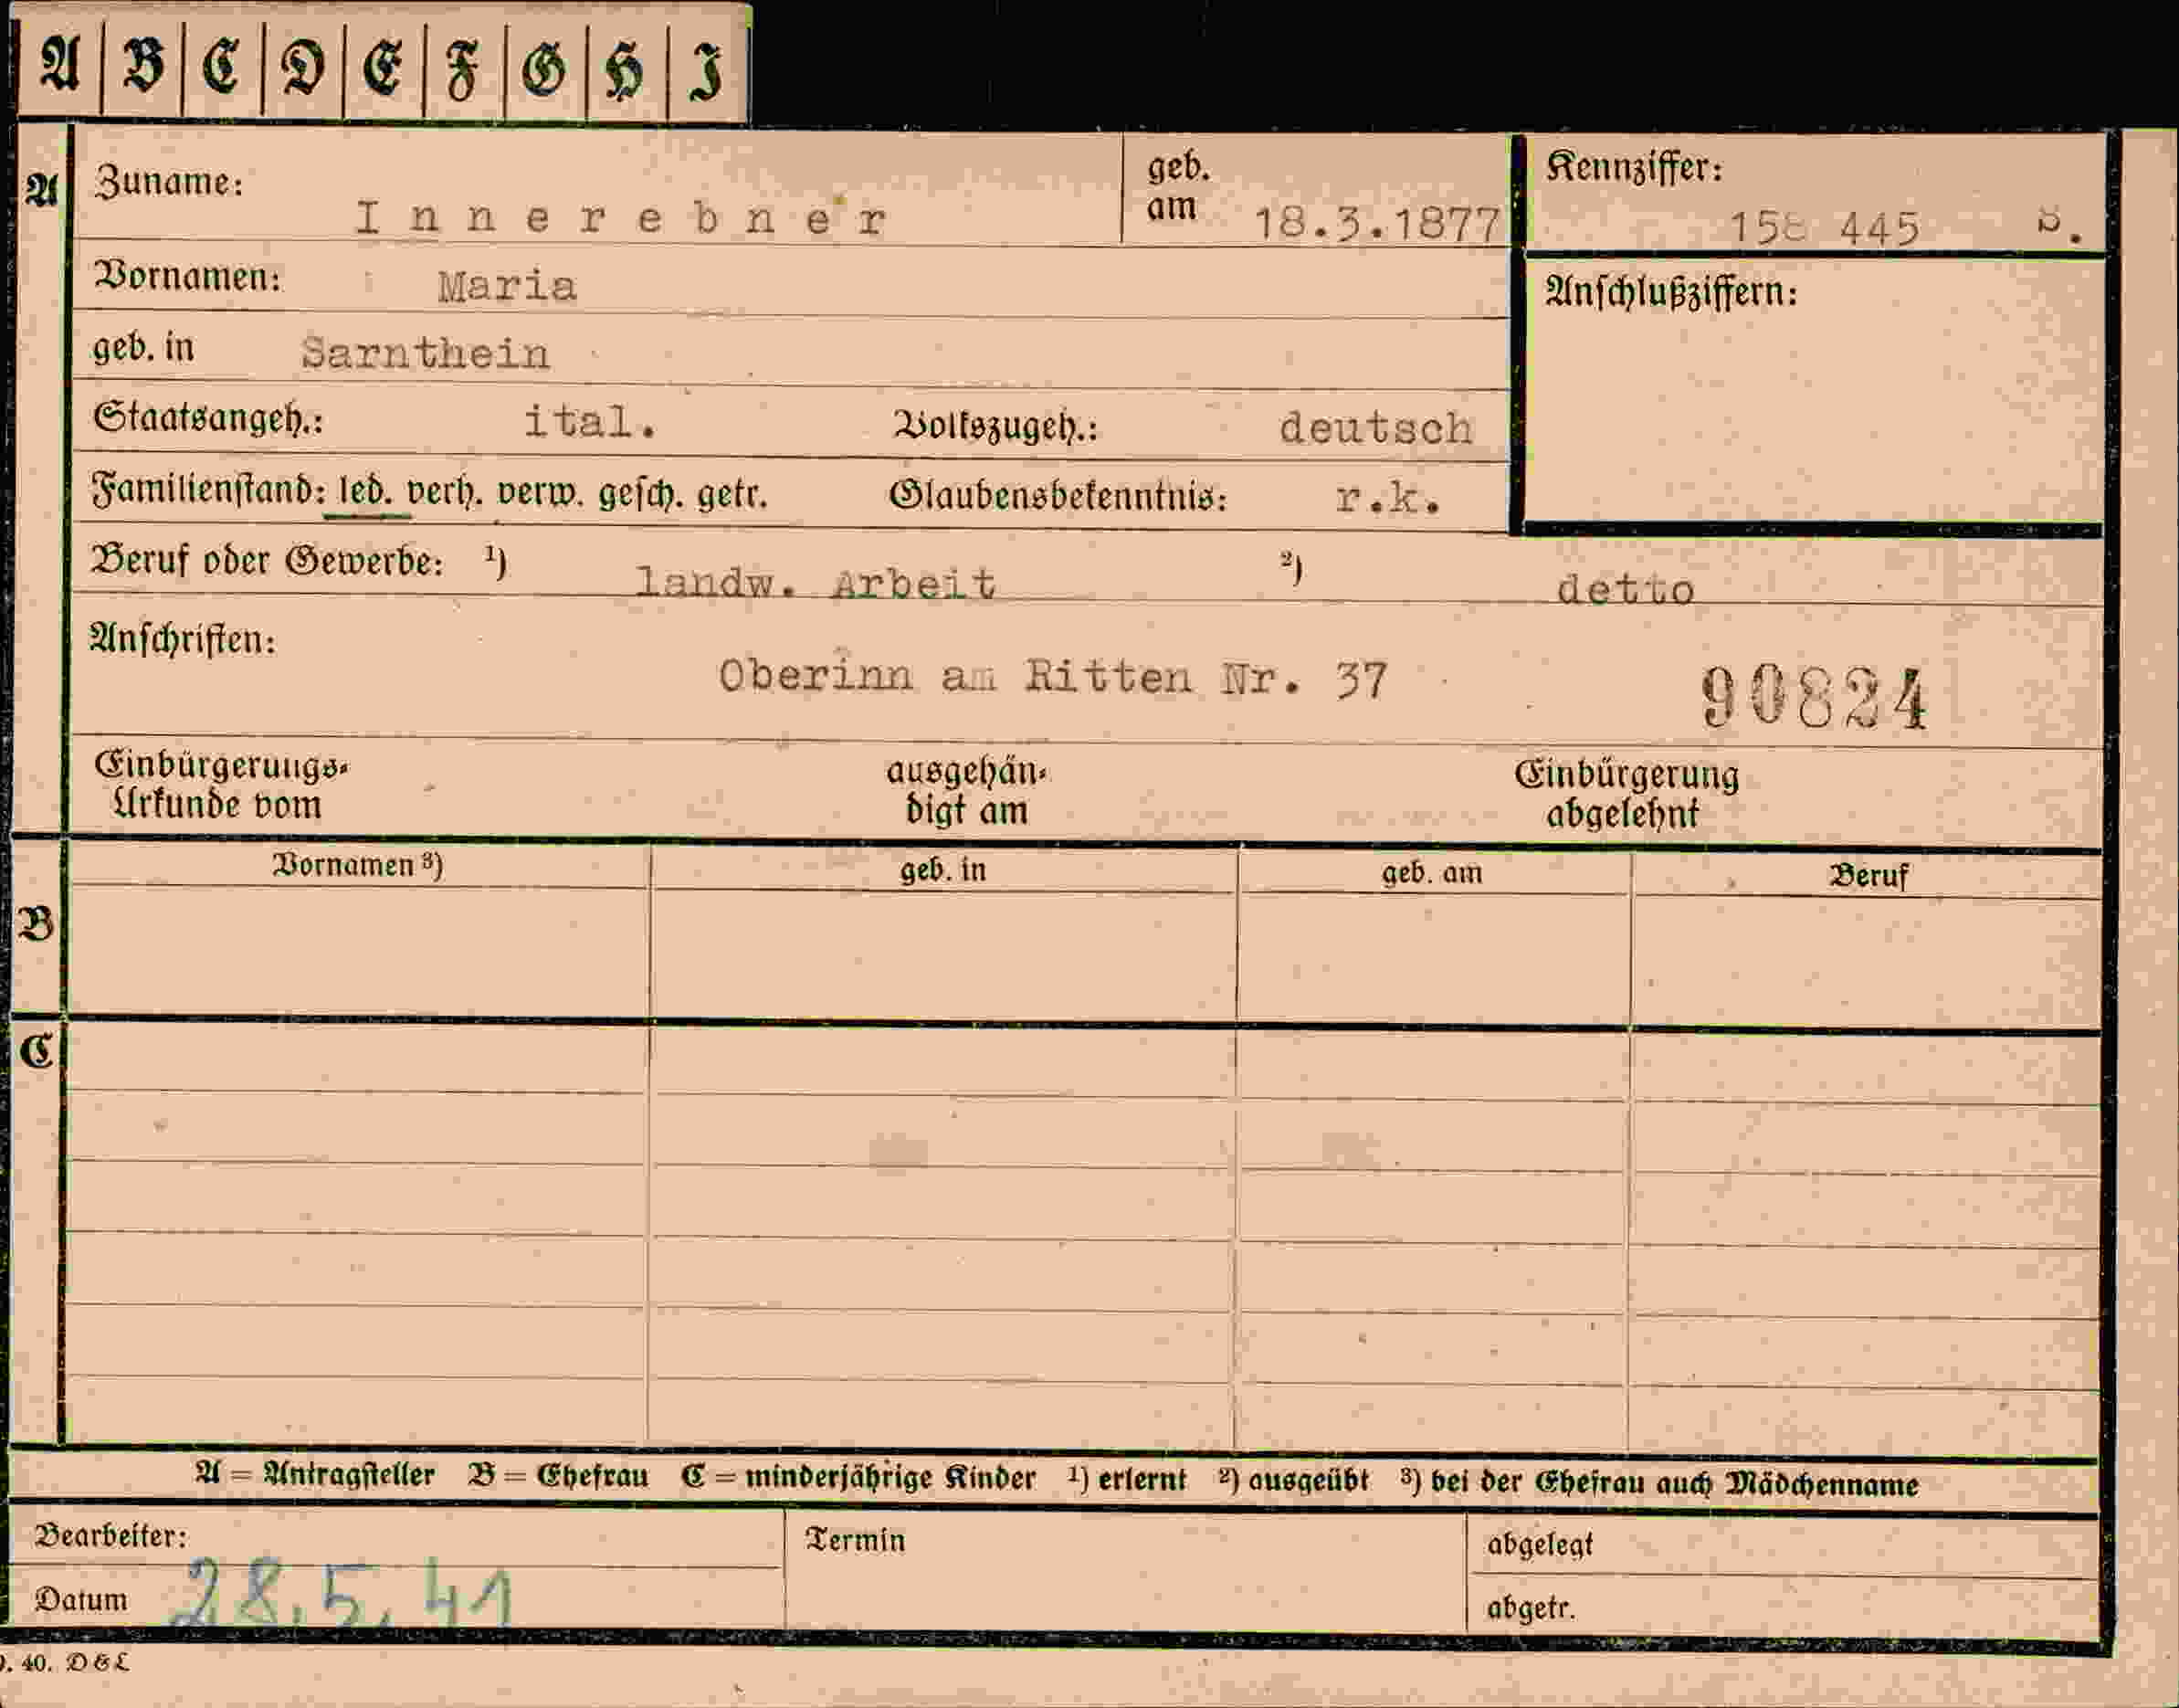 A B C D E F G H I
A Zuname: Innerebner geb. am 18.3.1877 Kennziffer: 158 445 B.
Vornamen: Maria Anschlußziffern:
geb. in Sarnthein
Staatsangeh.: ital. Volkszugeh.: deutsch
Familienstand: led. verh. verw. gesch. getr. Glaubensbekenntnis: r.k.
Beruf oder Gewerbe: ¹) landw. Arbeit ²) detto
Anschriften:
Oberinn am Ritten Nr. 37 90824
Einbürgerungs- ausgehän- Einbürgerung
Urkunde vom digt am abgelehnt
Vornamen ³) geb. in geb. am Beruf
B
C
A = Antragsteller B = Ehefrau C = minderjährige Kinder ¹) erlernt ²) ausgeübt ³) bei der Ehefrau auch Mädchenname
Bearbeiter: Termin abgelegt
Datum 28.5.41 abgetr.
40. D&L